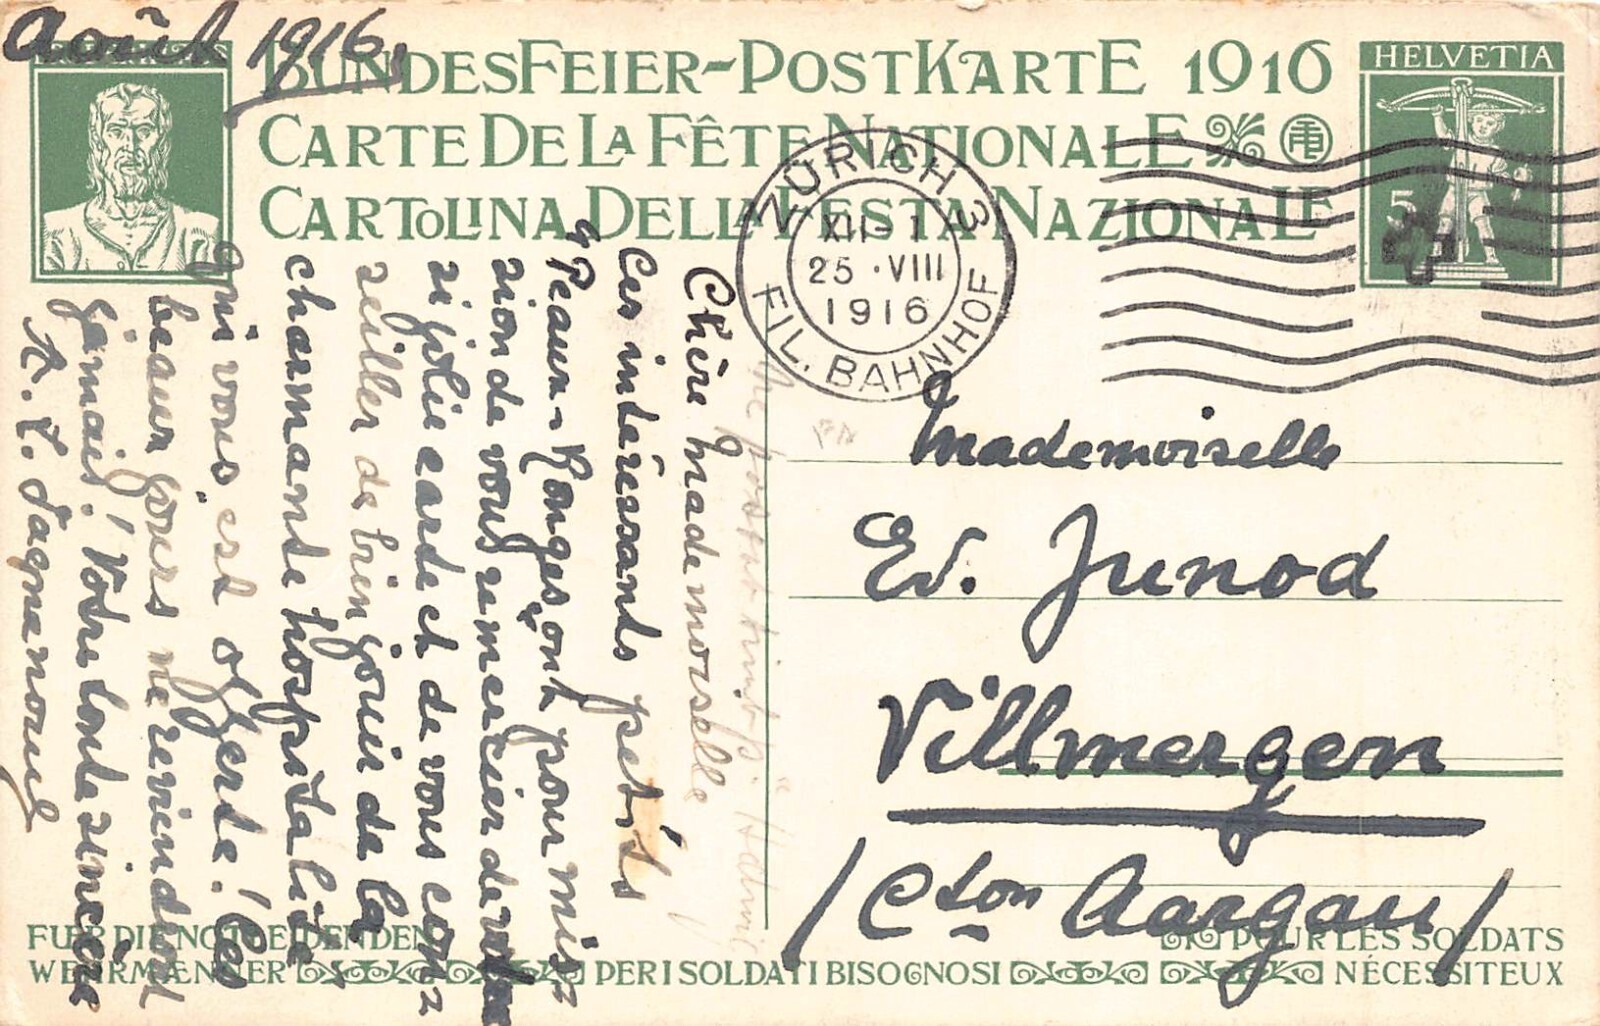 Août 1916.
BUNDESFEIER-POSTKARTE 1916
CARTE DE LA FÊTE NATIONALE
CARTOLINA DELLA FESTA NAZIONALE
HELVETIA
5
ZÜRICH 3
XII-1
25.VIII
1916
FIL. BAHNHOF
Chère Mademoiselle
Ces intéressants petits
"Peaux-Rouges" ont pour mis-
sion de vous remercier de votre
si jolie carte et de vous con-
seiller de bien jouir de la
charmante hospitalité
qui vous est offerte! Ces
beaux jours ne reviendront
jamais! Votre toute sincère
Mademoiselle
Ed. Junod
Villmergen
/Cton Aargau/
FUER DIE NOTLEIDENDEN
WEHRMÆNNER
PER I SOLDATI BISOGNOSI
POUR LES SOLDATS
NÉCESSITEUX